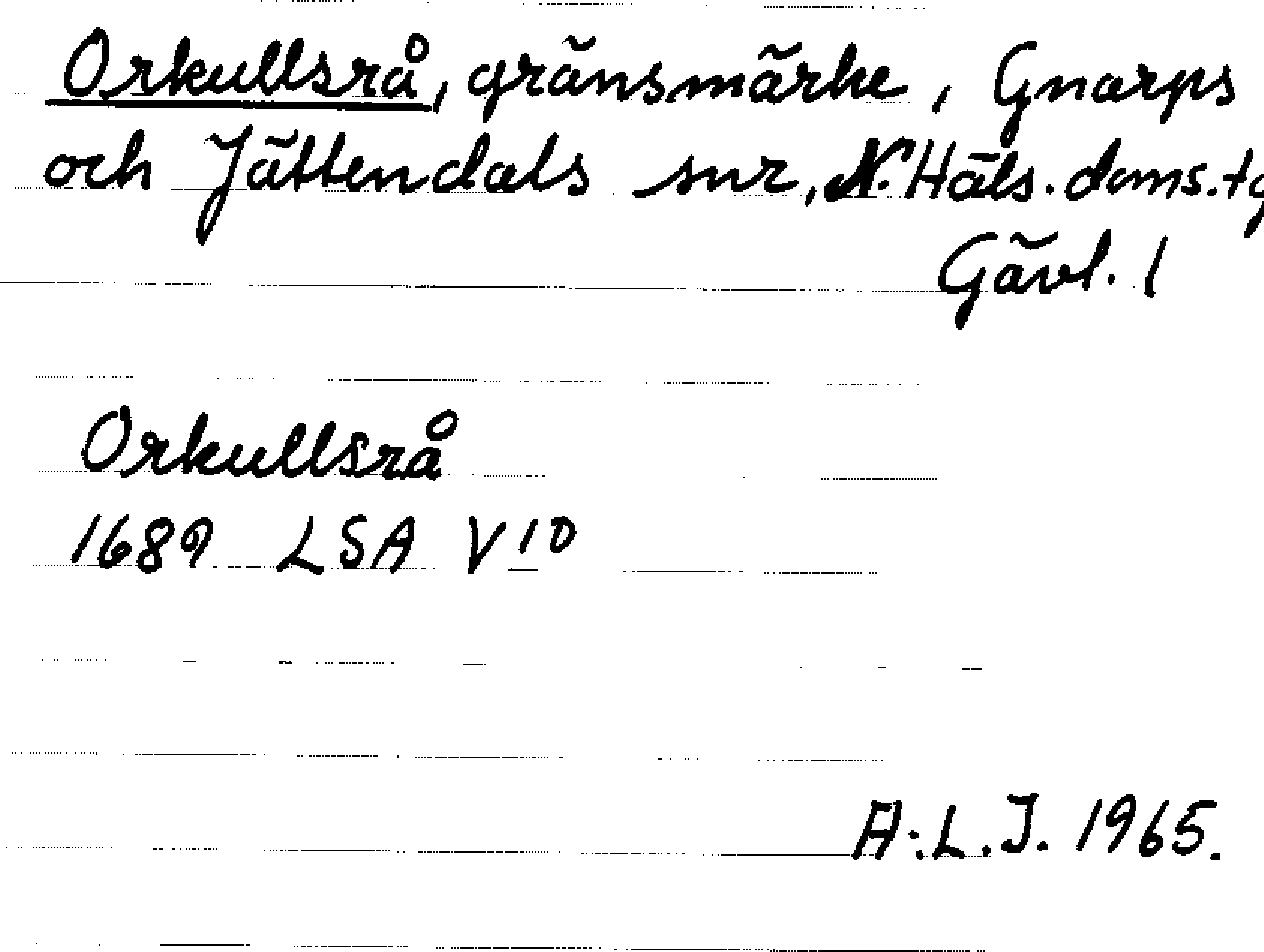 Orkullsrå, gränsmärke, Gnarps
och Jättendals snr, N. Häls. doms. tg
Gävl. l
Orkullsrå
1689 LSA V 10
A.L.J. 1965.